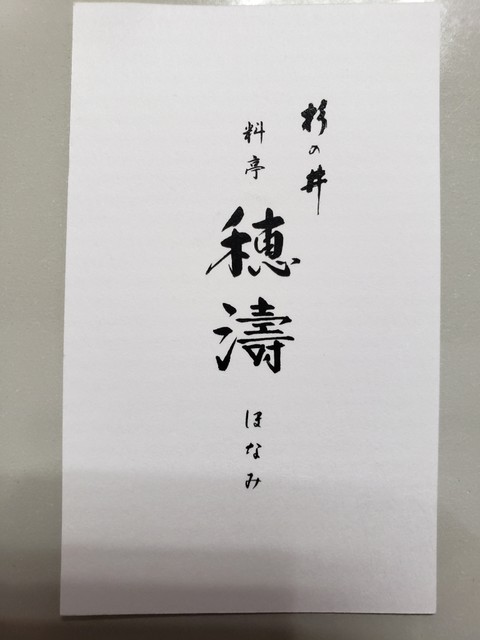 杉の井
料亭
穂濤
ほなみ